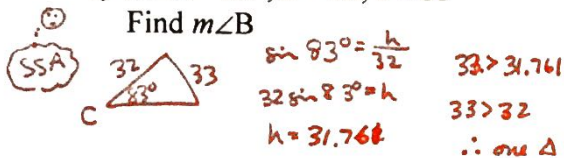 Find m∠B
SSA
32
33
83°
C
sin 83° = h/32
32 sin 83° = h
h = 31.761
33 > 31.761
33 > 32
∴ one Δ